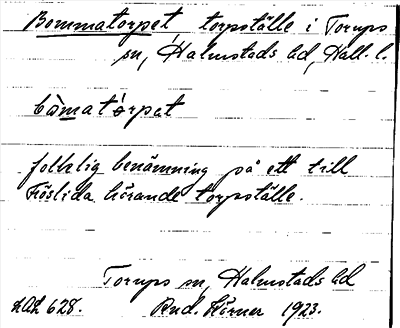 Bommatorpet torpställe i Torups
sn, Halmstads hd, Hall. l.
bòmatórpet
folklig benämning på ett till
Fröslida hörande torpställe.
Torups sn, Halmstads hd
628. Rud. Körner 1923.